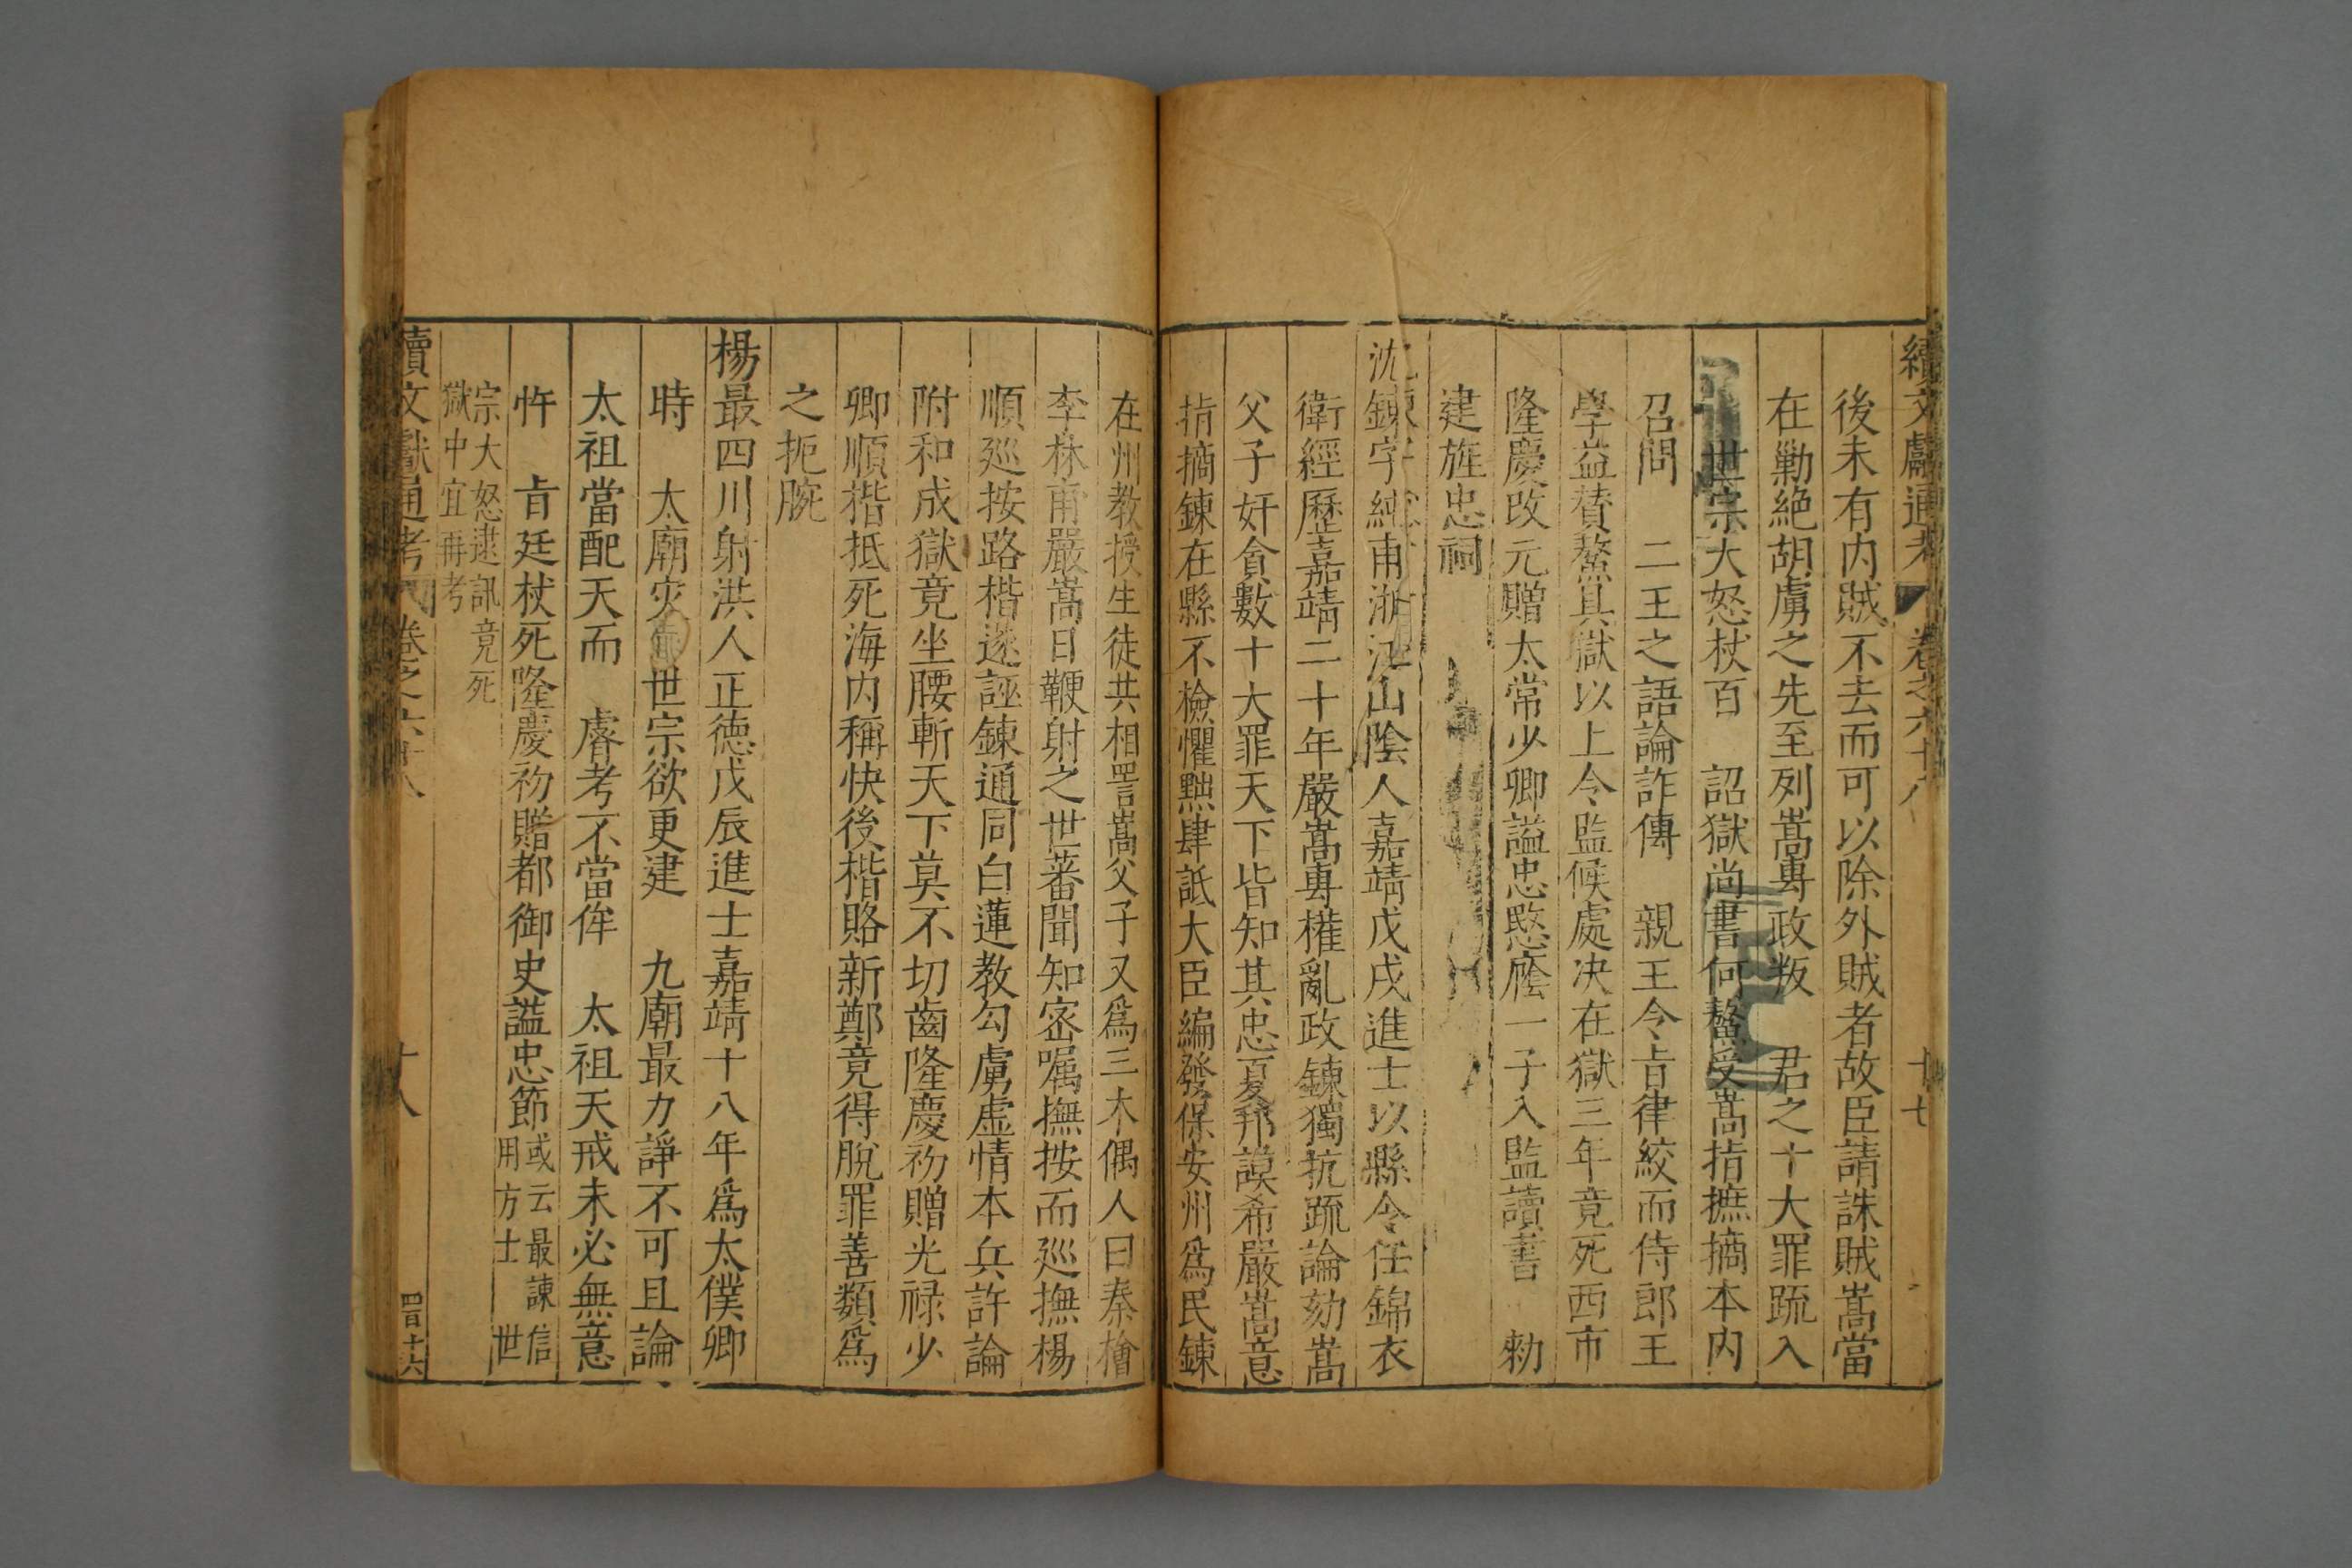 續文獻通考 卷之六十八 十七
後未有内賊不去而可以除外賊者故臣請誅賊嵩當
在勦絶胡虜之先至列嵩專政叛 君之十大罪疏入
世宗大怒杖百 詔獄尚書何鰲受嵩指摭摘本内
召問 二王之語論詐傳 親王令旨律絞而侍郎王
學益賛鰲具獄以上令監候處决在獄三年竟死西市
隆慶改元贈太常少卿謚忠愍廕一子入監讀書 勑
建旌忠祠
沈鍊字純甫浙江山陰人嘉靖戊戌進士以縣令任錦衣
衛經歷嘉靖二十年嚴嵩專權亂政鍊獨抗疏論劾嵩
父子奸貪數十大罪天下皆知其忠夏邦謨希嚴嵩意
指摘鍊在縣不檢懼黜肆詆大臣編發保安州爲民鍊
在州教授生徒共相詈嵩父子又爲三木偶人曰秦檜
李林甫嚴嵩日鞭射之世蕃聞知密嘱撫按而巡撫楊
順巡按路楷遂誣鍊通同白蓮教勾虜虚情本兵許論
附和成獄竟坐腰斬天下莫不切齒隆慶初贈光禄少
卿順楷抵死海内稱快後楷賂新鄭竟得脫罪善類爲
之扼腕
楊最四川射洪人正德戊辰進士嘉靖十八年爲太僕卿
時 太廟灾 世宗欲更建 九廟最力諍不可且論
太祖當配天而 睿考不當侔 太祖天戒未必無意
忤 旨廷杖死隆慶初贈都御史謚忠節或云最諫信
用方士 世
宗大怒逮訊竟死
獄中宜再考
續文獻通考 卷之六十八 十八 四百十六